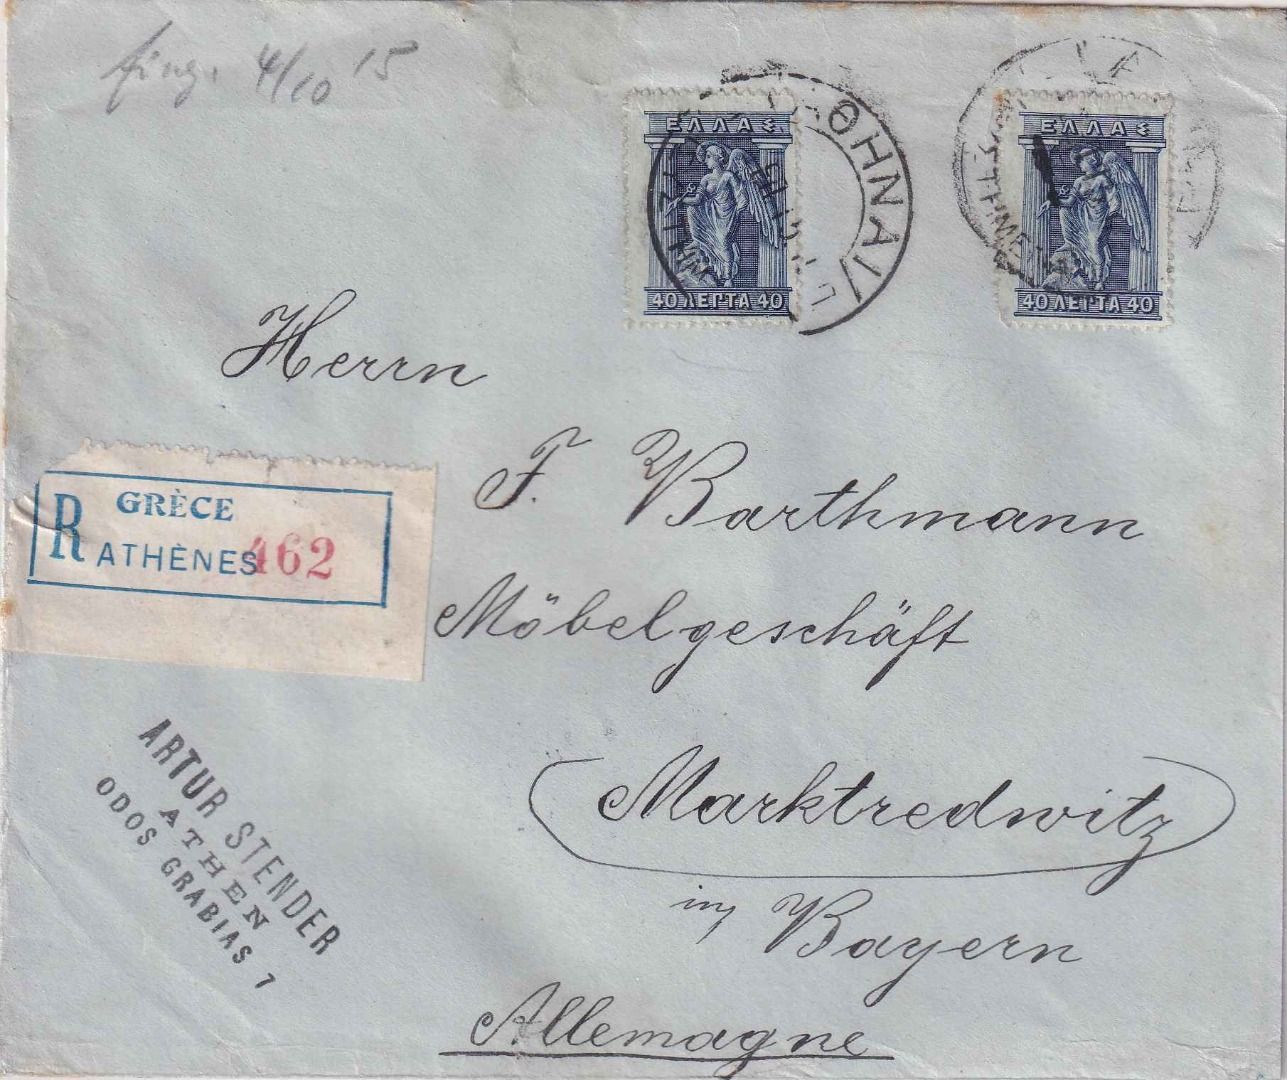 4/10 15
ΕΛΛΑΣ
40 ΛΕΠΤΑ 40
ΑΘΗΝΑΙ
ΕΛΛΑΣ
40 ΛΕΠΤΑ 40
Herrn
F. Barthmann
Möbelgeschäft
Marktredwitz
in Bayern
Allemagne
R GRÈCE
ATHÈNES 462
ARTUR STENDER
ATHEN
ODOS GRABIAS 7